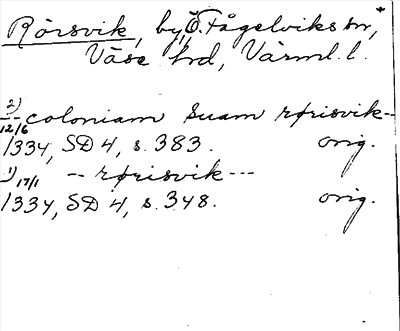 Rörsvik, by, Ö. Fågelviks sn,*
Väse hd, Värml. l.
2) -- coloniam suam rørisvik--
12/6
1334, SD 4, s. 383. orig.
1) 17/1 -- rørisvik ---
1334, SD 4, s. 348. orig.